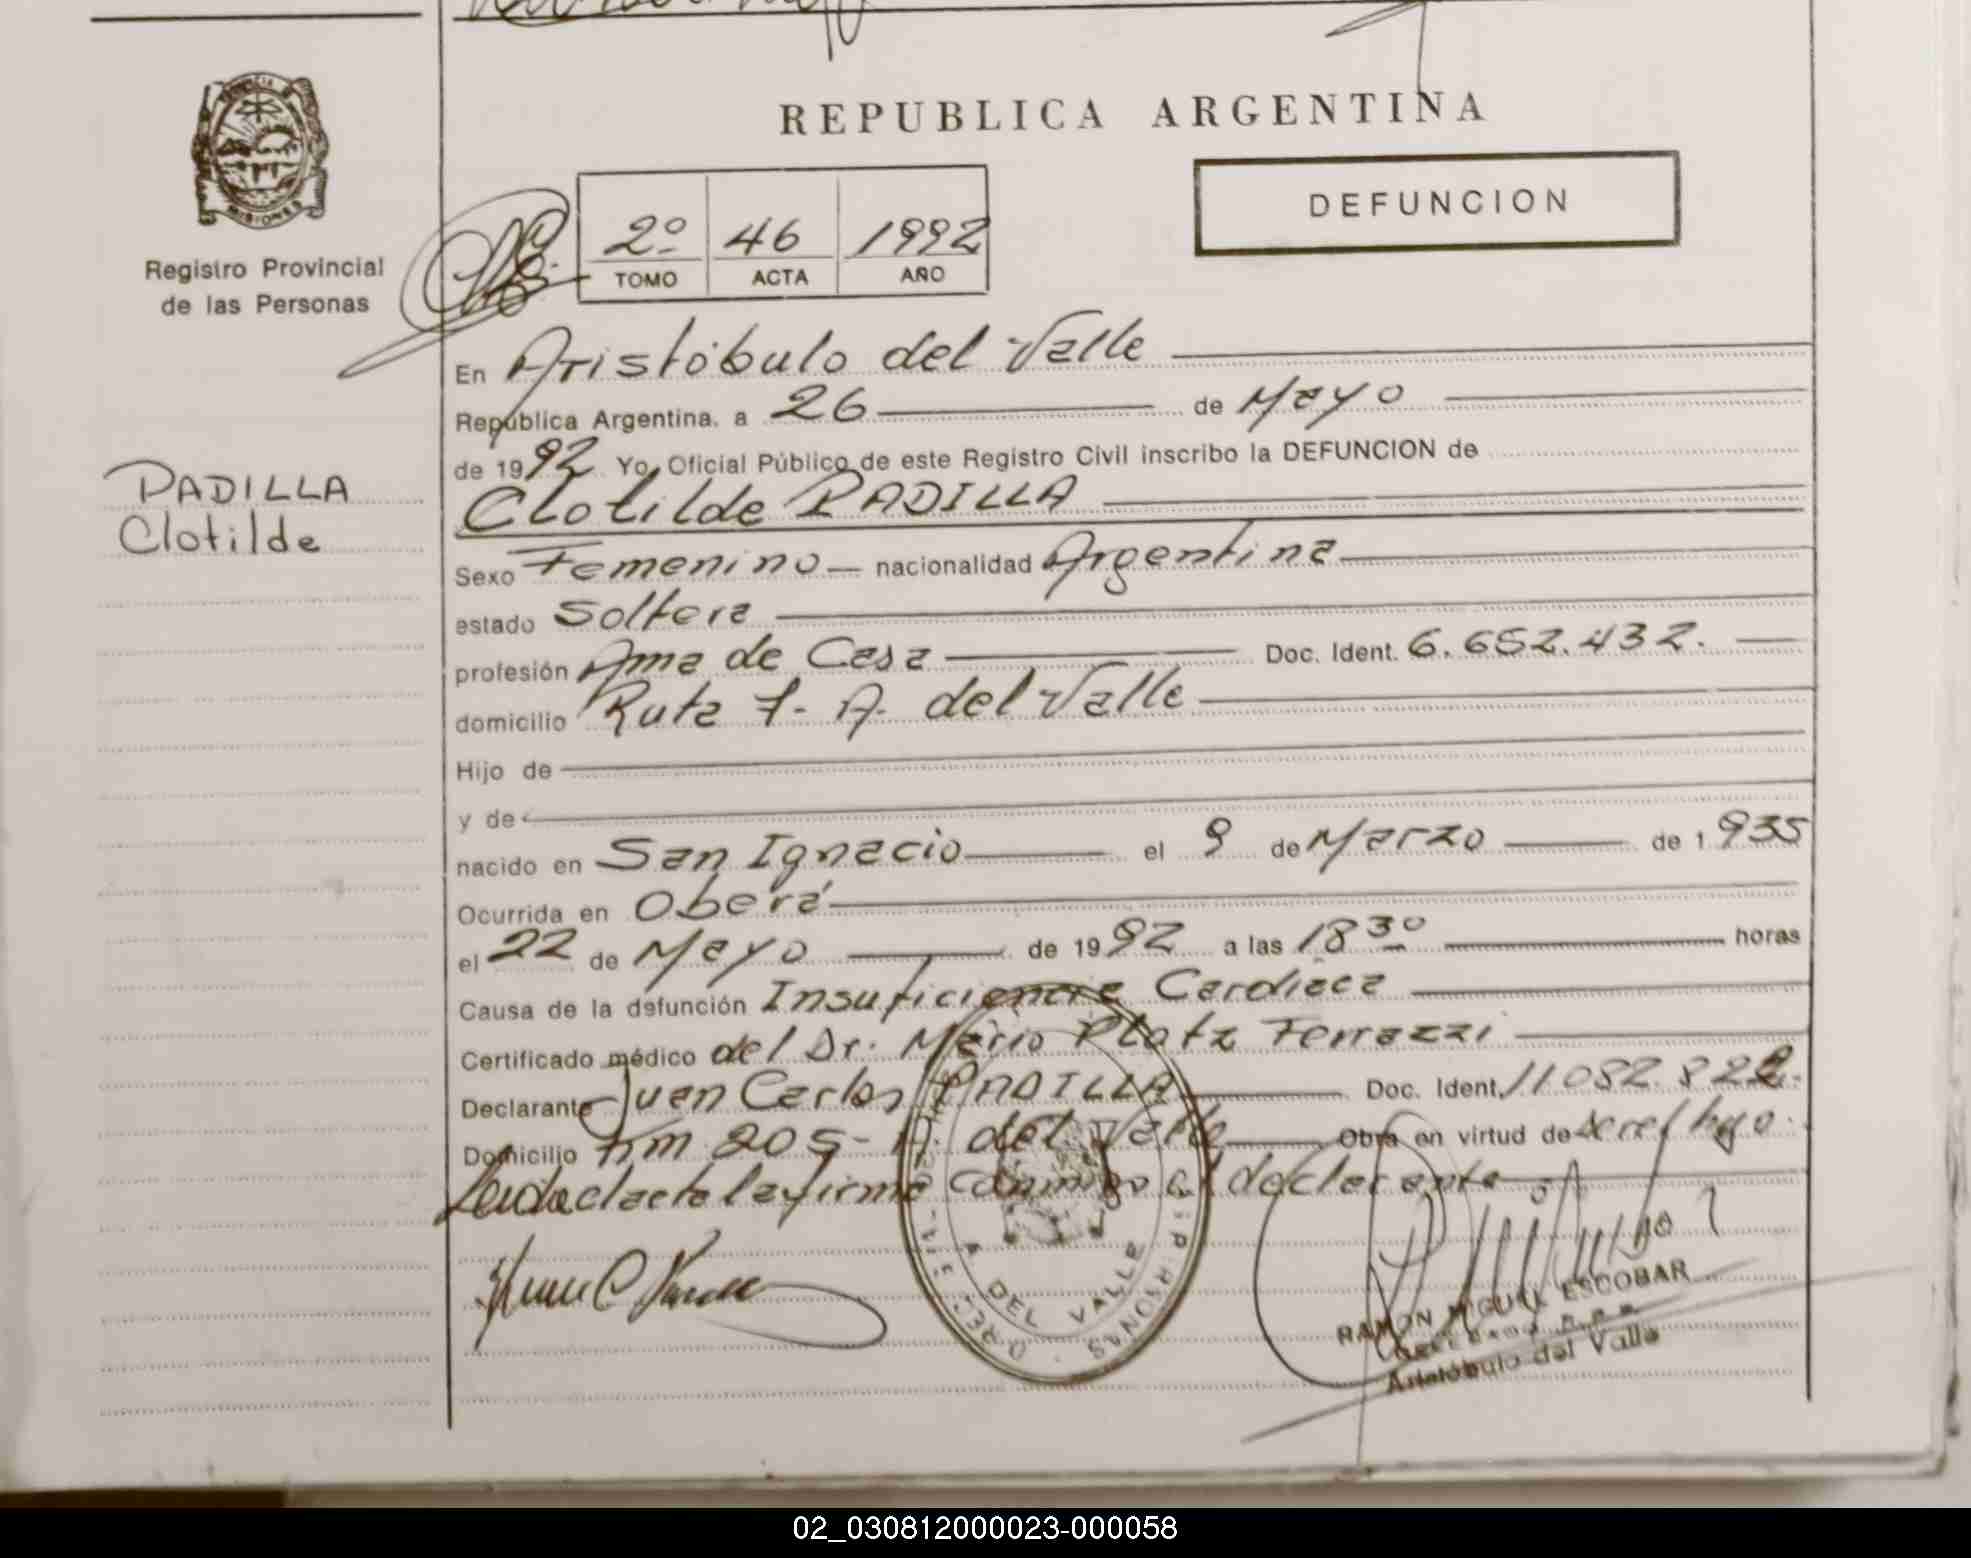 REPUBLICA ARGENTINA
DEFUNCION
MISIONES
Registro Provincial
de las Personas
2º 46 1992
TOMO ACTA AÑO
En Aristóbulo del Valle
República Argentina, a 26 de Mayo
de 1992 Yo, Oficial Público de este Registro Civil inscribo la DEFUNCION de
PADILLA
Clotilde
Clotilde PADILLA
Sexo Femenino nacionalidad Argentina
estado Soltera
profesión Ama de Casa Doc. Ident. 6.652.432.
domicilio Ruta 7. A. del Valle
Hijo de
y de
nacido en San Ignacio el 9 de Marzo de 1935
Ocurrida en Oberá
el 22 de Mayo de 1992 a las 18 30 horas
Causa de la defunción Insuficiencia Cardíaca
Certificado médico del Dr. Mario Ferrazzi
Declarante Juan Carlos PADILLA Doc. Ident. 11.082.822.
Domicilio Km 205- A. del Valle Obra en virtud de ser el hijo.
Leida el acta la firma conmigo el declarante
A DEL VALLE
RAMON MIGUEL ESCOBAR
Aristóbulo del Valle
02_030812000023-000058